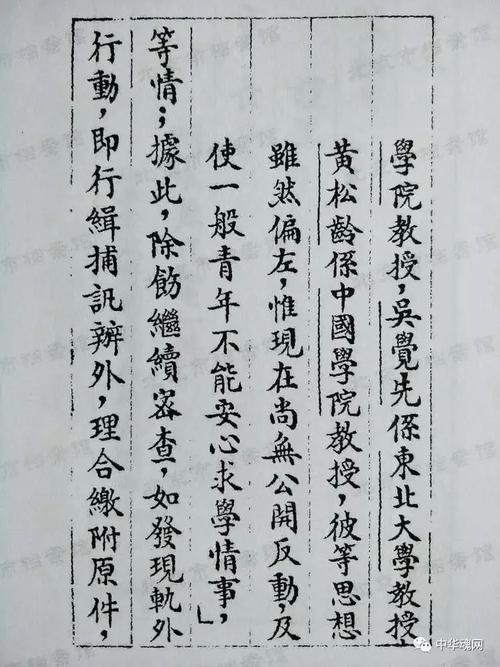 學院教授，吳覺先係東北大學教授，
黃松齡係中國學院教授，彼等思想
雖然偏左，惟現在尚無公開反動，及
使一般青年不能安心求學情事，」
等情；據此，除飭繼續審查，如發現軌外
行動，即行緝捕訊辦外，理合繳附原件，
北京市档案馆
中华魂网